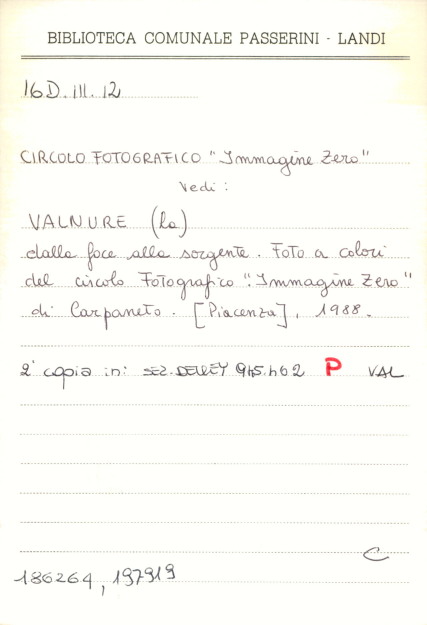 BIBLIOTECA COMUNALE PASSERINI - LANDI
16D.III.12
CIRCOLO FOTOGRAFICO "Immagine Zero"
Vedi:
VALNURE (La)
dalla foce alla sorgente. Foto a colori
del circolo Fotografico "Immagine Zero"
di Carpaneto. [Piacenza], 1988.
2ª copia in: SEZ. 945.462 P VAL
C
186264, 197919